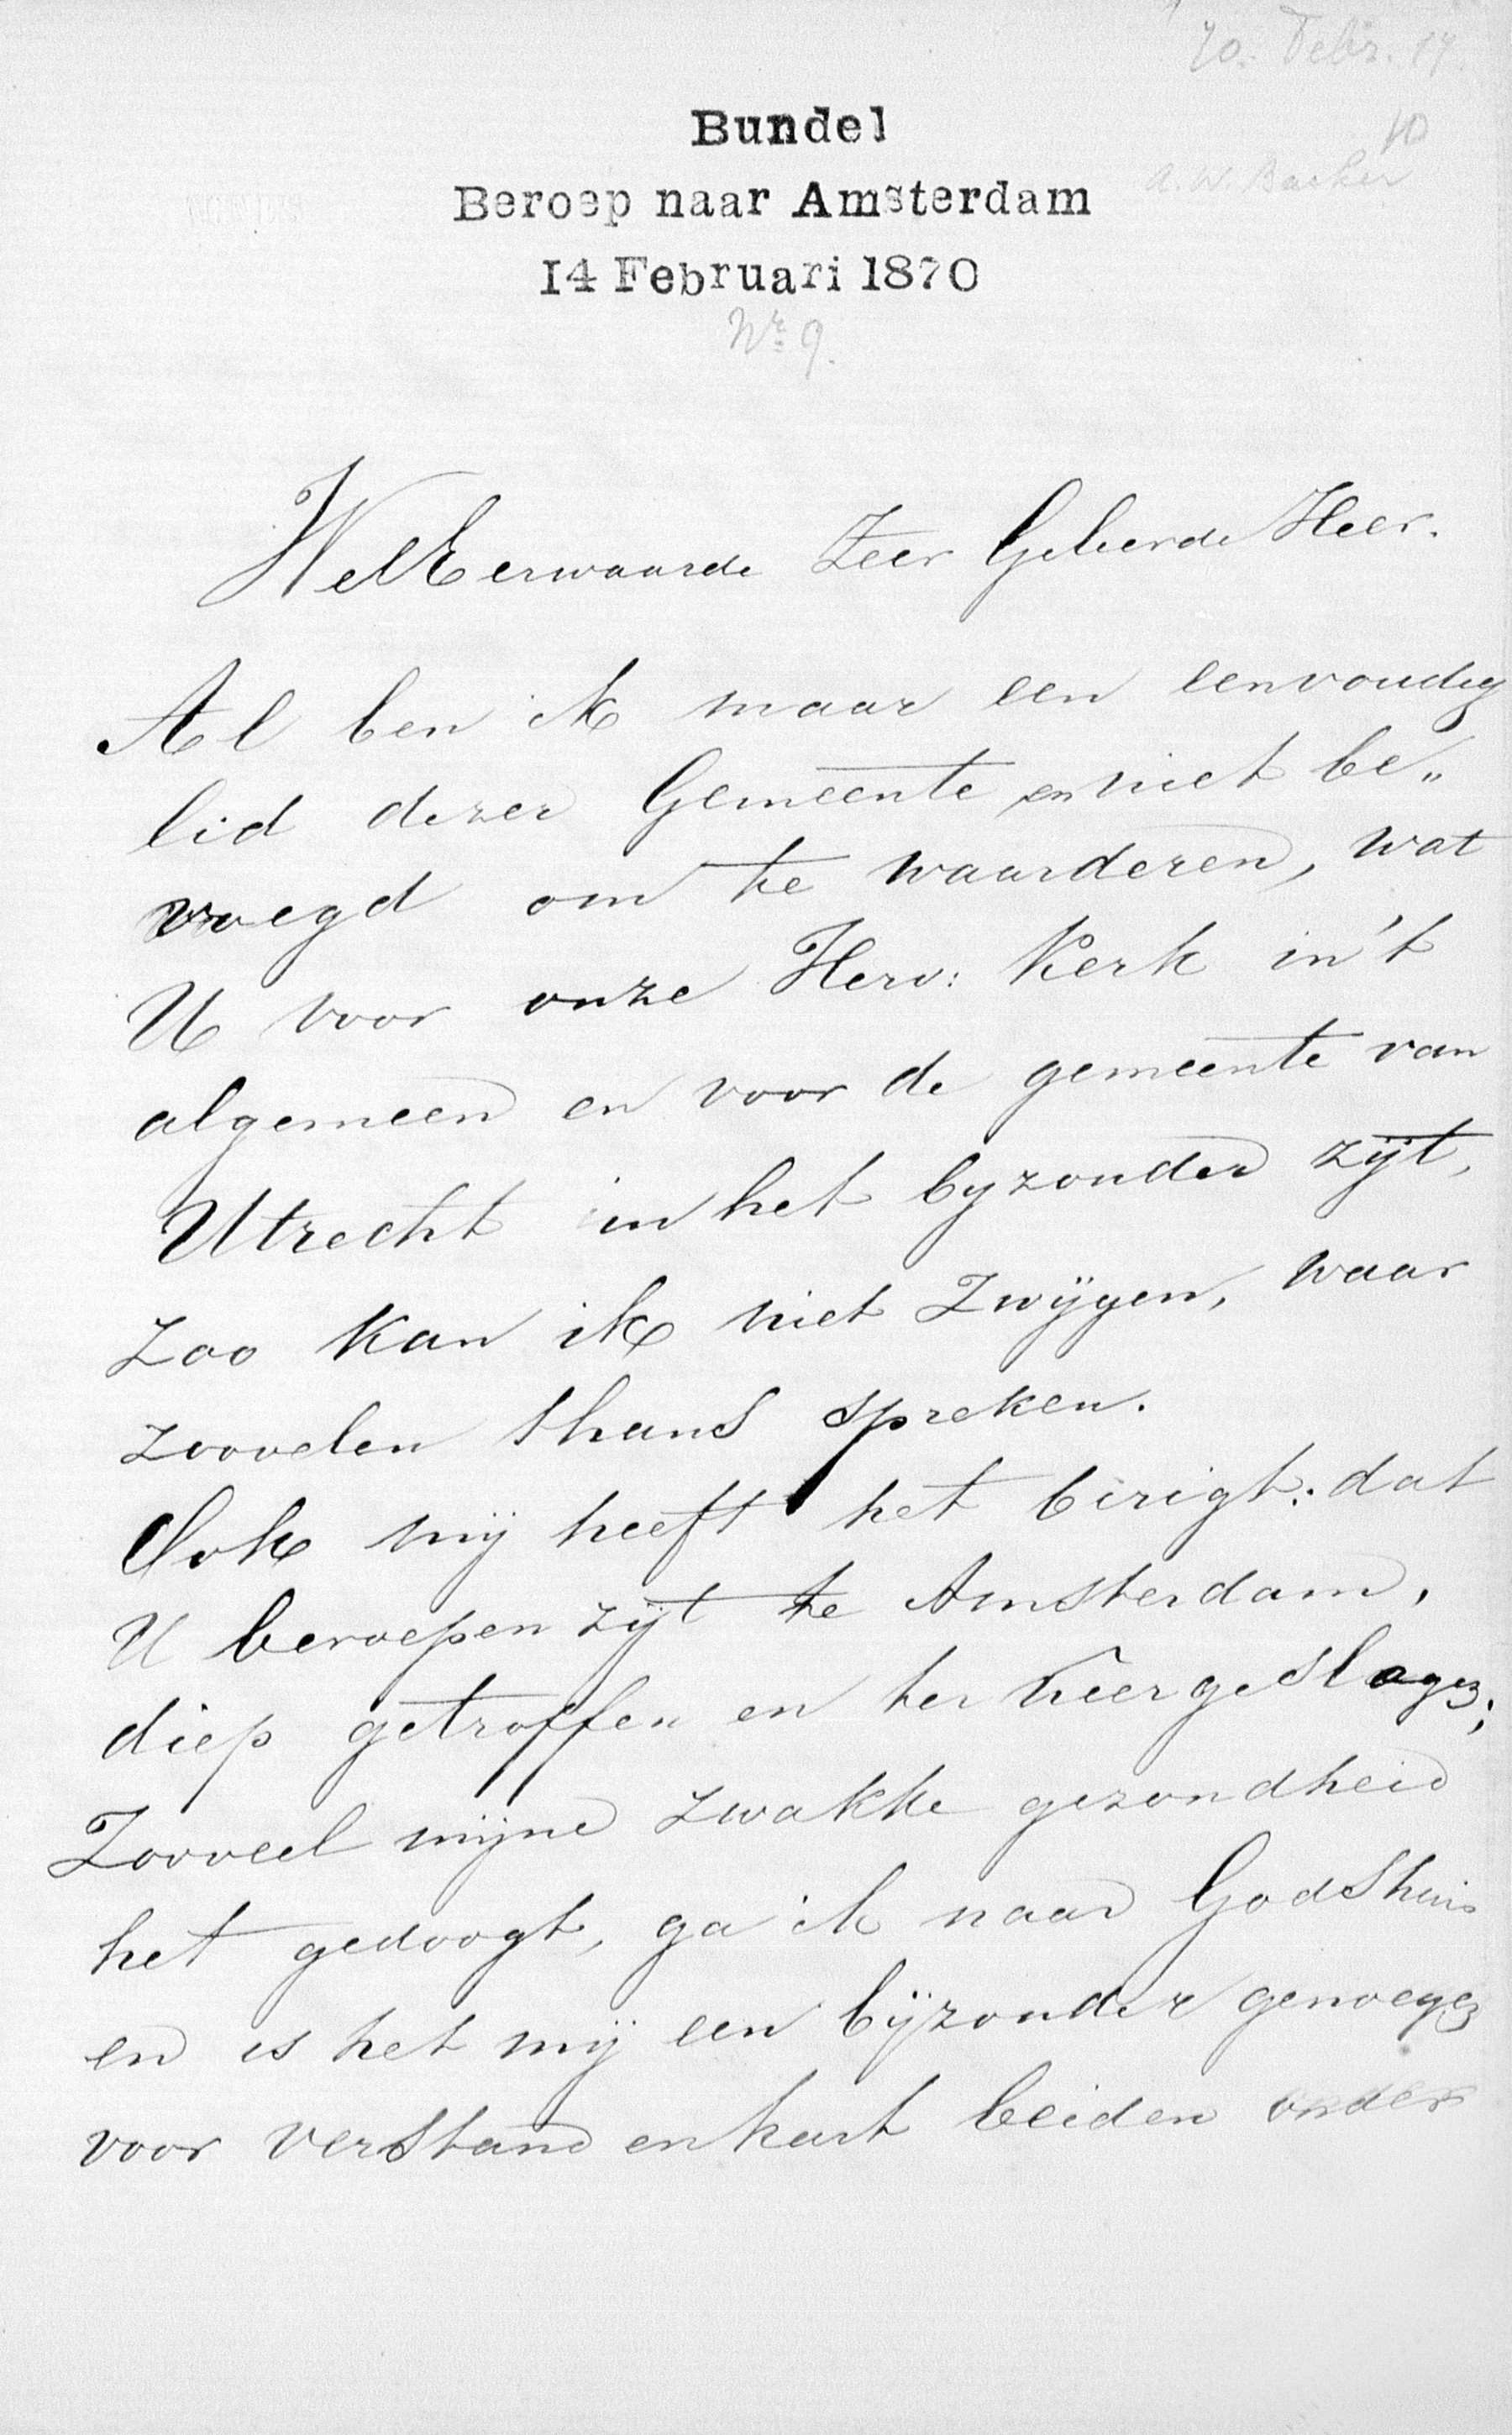 70. Febr. 14.
Bundel
10
Beroep naar Amsterdam
A. W. Backer
14 Februari 1870
Nr 9.
WelEerwaarde Zeer Geleerde Heer.
Al ben ik maar een eenvoudig
lid dezer Gemeente en niet be„
voegd om te waarderen, wat
U voor onze Herv: Kerk in't
algemeen en voor de gemeente van
Utrecht in het byzonder zijt,
Zoo kan ik niet Zwijgen, waar
zoovelen thans spreken.
Ook mij heeft het berigt: dat
U beroepen zijt te Amsterdam,
diep getroffen en ter neergeslagen;
Zooveel mijne zwakke gezondheid
het gedoogt, ga ik naar Gods huis
en is het mij een bijzonder genoegen
voor verstand en hart beiden onder